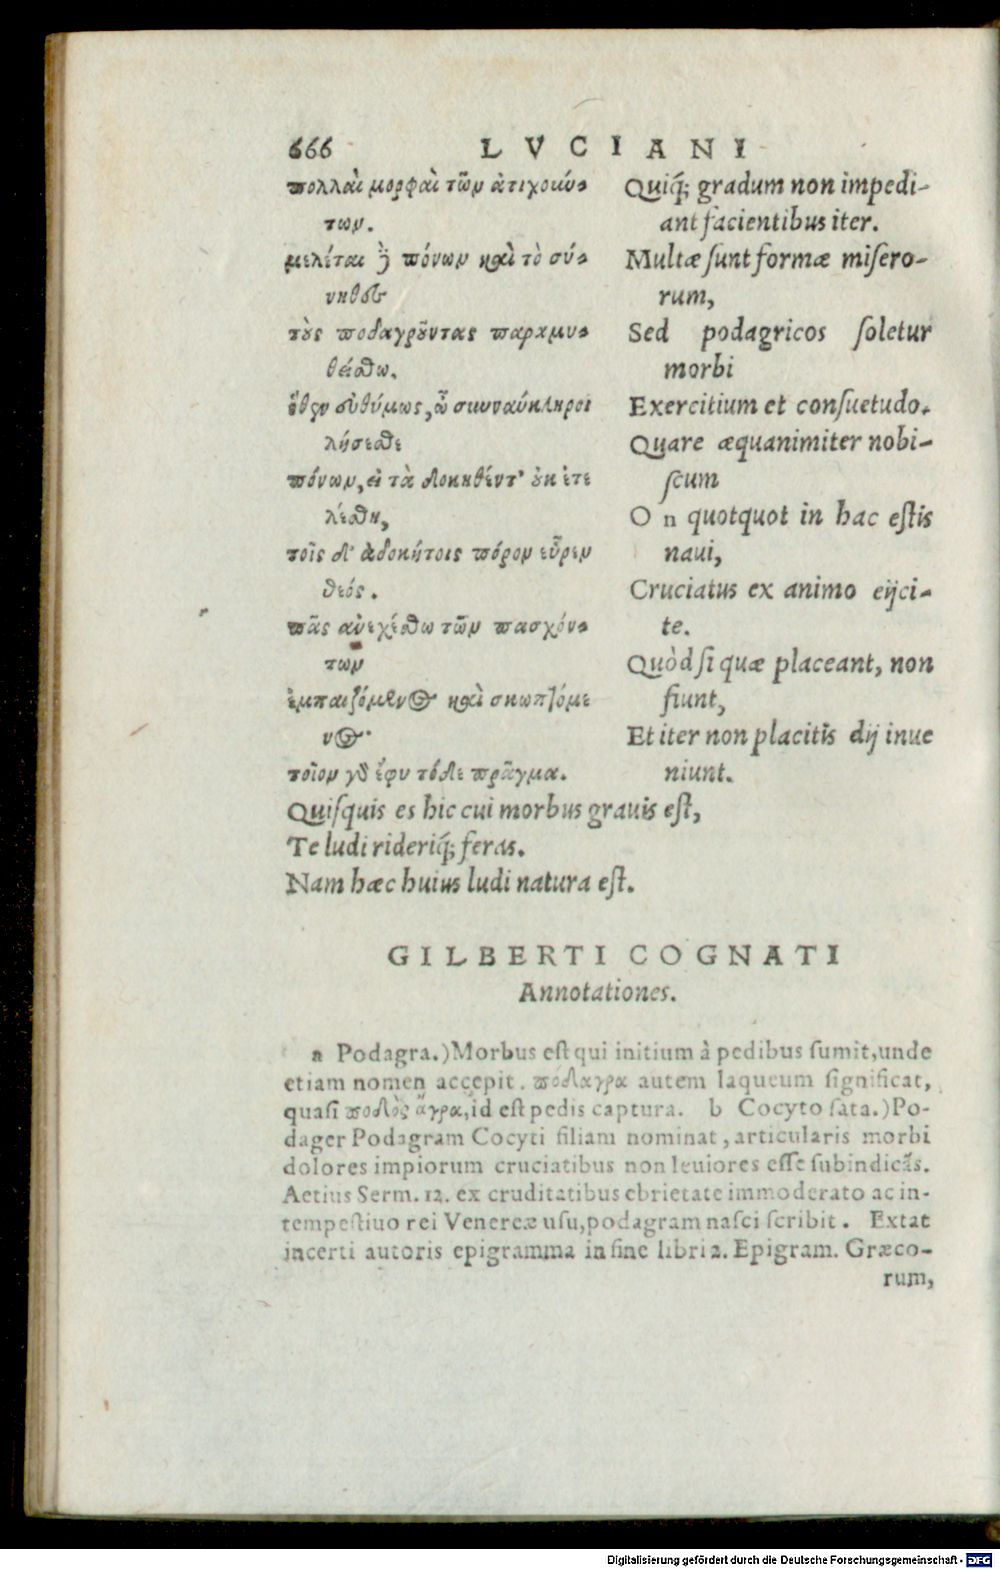 666 LVCIANI
πολλαὶ μορφαὶ τῶν ἀτιχούν-
των.
μελέται δὲ πόνων καὶ τὸ σύ-
νηθες
τοὺς ποδαγροῦντας παραμυ-
θείσθω.
ὅθεν εὐθύμως, ὦ σκυναύκληροι
λήσεσθε
πόνων, εἰ τὰ δοκηθέντ' οὐκ ἐτε
λέσθη,
τοῖς δ' ἀδοκήτοις πόρον εὗρεν
θεός.
πᾶς ἀνεχέσθω τῶν πασχόν-
των
ἐμπαιζόμενος καὶ σκωπτόμε
νος.
τοῖον γὰρ ἔφυ τόδε πρᾶγμα.
Quiq́; gradum non impedi-
ant facientibus iter.
Multæ sunt formæ misero-
rum,
Sed podagricos soletur
morbi
Exercitium et consuetudo.
Quare æquanimiter nobi-
scum
O n quotquot in hac estis
naui,
Cruciatus ex animo eijci-
te.
Quòd si quæ placeant, non
fiunt,
Et iter non placitis dij inue
niunt.
Quisquis es hic cui morbus grauis est,
Te ludi rideriq́; feras.
Nam hæc huius ludi natura est.
GILBERTI COGNATI
Annotationes.
a Podagra.)Morbus est qui initium à pedibus sumit,unde
etiam nomen accepit. πόδαγρα autem laqueum significat,
quasi ποδὸς ἄγρα,id est pedis captura. b Cocyto sata.)Po-
dager Podagram Cocyti filiam nominat, articularis morbi
dolores impiorum cruciatibus non leuiores esse subindicãs.
Aetius Serm. 12. ex cruditatibus ebrietate immoderato ac in-
tempestiuo rei Venereæ usu,podagram nasci scribit. Extat
incerti autoris epigramma in fine libri 2. Epigram. Græco-
rum,
Digitalisierung gefördert durch die Deutsche Forschungsgemeinschaft - DFG